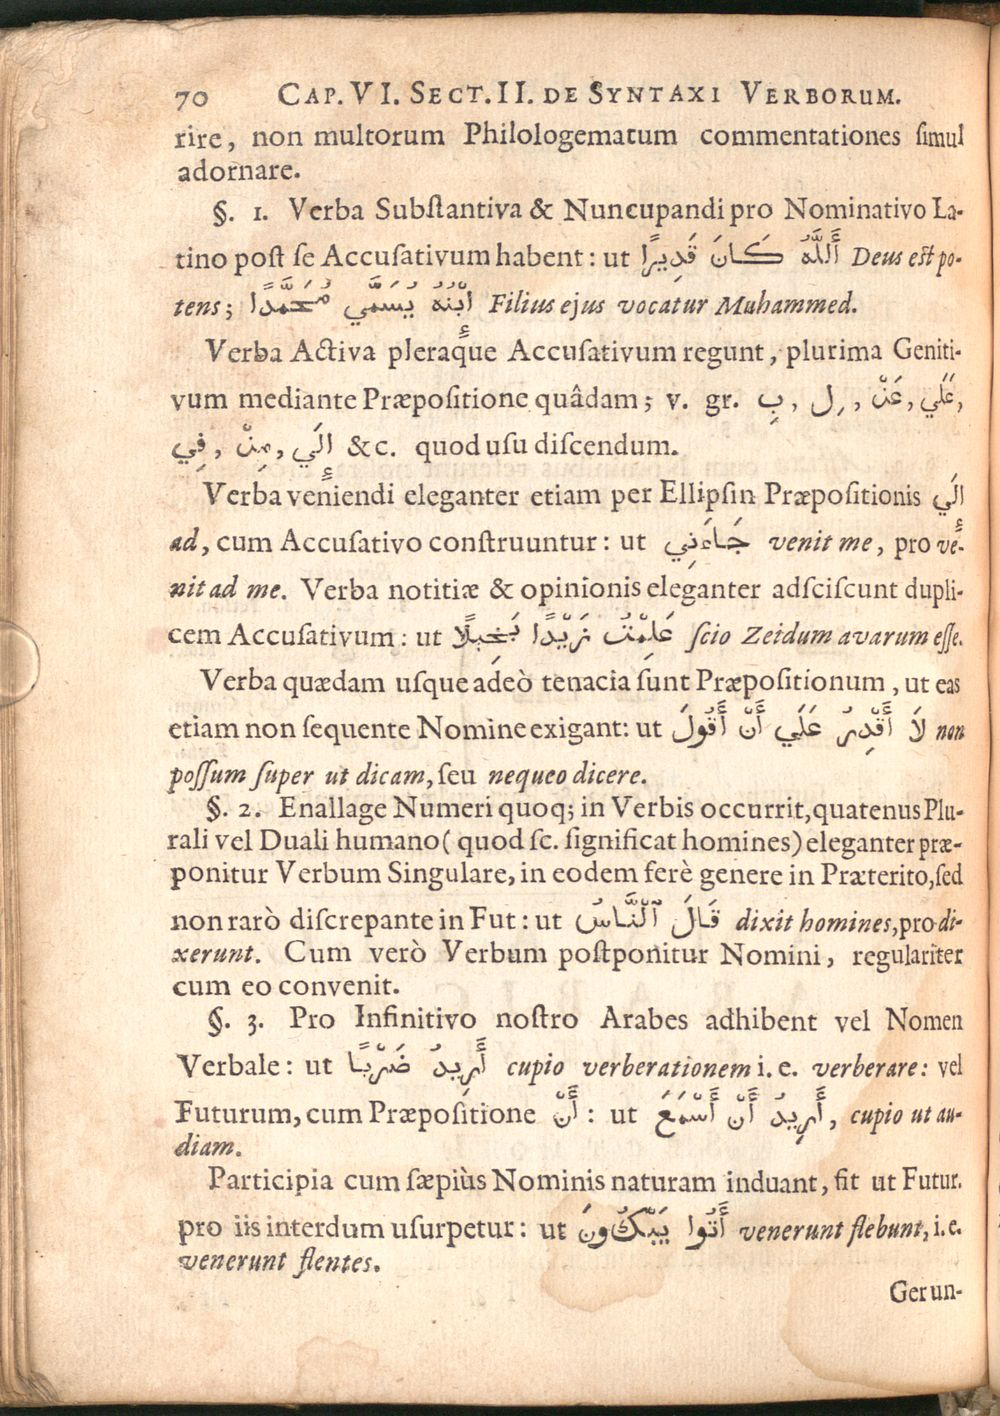 70 CAP. VI. SECT. II. DE SYNTAXI VERBORUM.
rire, non multorum Philologematum commentationes ſimul
adornare.
§. 1. Verba Subſtantiva & Nuncupandi pro Nominativo La-
tino poſt ſe Accuſativum habent: ut أَللَّهُ كَانَ قَدِيرًا Deus eſt po-
tens; أَبْنُهُ يُسَمَّي مُحَمَّدًا Filius ejus vocatur Muhammed.
Verba Activa pleraque Accuſativum regunt, plurima Geniti-
vum mediante Præpoſitione quâdam; v. gr. بِ, لِ, عَنْ, عَلَي,
فِي, مِنْ, إِلَي &c. quod uſu diſcendum.
Verba veniendi eleganter etiam per Ellipſin Præpoſitionis إِلَي
ad, cum Accuſativo conſtruuntur: ut جَاءَنِي venit me, pro ve-
nit ad me. Verba notitiæ & opinionis eleganter adſciſcunt dupli-
cem Accuſativum: ut عَلِمْتُ زَيْدًا بَخِيلًا ſcio Zeidum avarum eſſe.
Verba quædam uſque adeò tenacia ſunt Præpoſitionum, ut eas
etiam non ſequente Nomine exigant: ut لَا أَقْدِرُ عَلَي أَنْ أَقُولَ non
poſſum ſuper ut dicam, ſeu nequeo dicere.
§. 2. Enallage Numeri quoq; in Verbis occurrit, quatenus Plu-
rali vel Duali humano (quod ſc. ſignificat homines) eleganter præ-
ponitur Verbum Singulare, in eodem ferè genere in Præterito, ſed
non rarò diſcrepante in Fut: ut قَالَ ٱلْنَّاسُ dixit homines, pro di-
xerunt. Cum verò Verbum poſtponitur Nomini, regulariter
cum eo convenit.
§. 3. Pro Infinitivo noſtro Arabes adhibent vel Nomen
Verbale: ut أَرِيدُ ضَرْبًا cupio verberationem i. e. verberare: vel
Futurum, cum Præpoſitione أَنْ : ut أَرِيدُ أَنْ أَسْمَعَ, cupio ut au-
diam.
Participia cum ſæpiùs Nominis naturam induant, fit ut Futur.
pro iis interdum uſurpetur: ut أَتُوا يَبْكُونَ venerunt flebunt, i. e.
venerunt flentes.
Gerun-